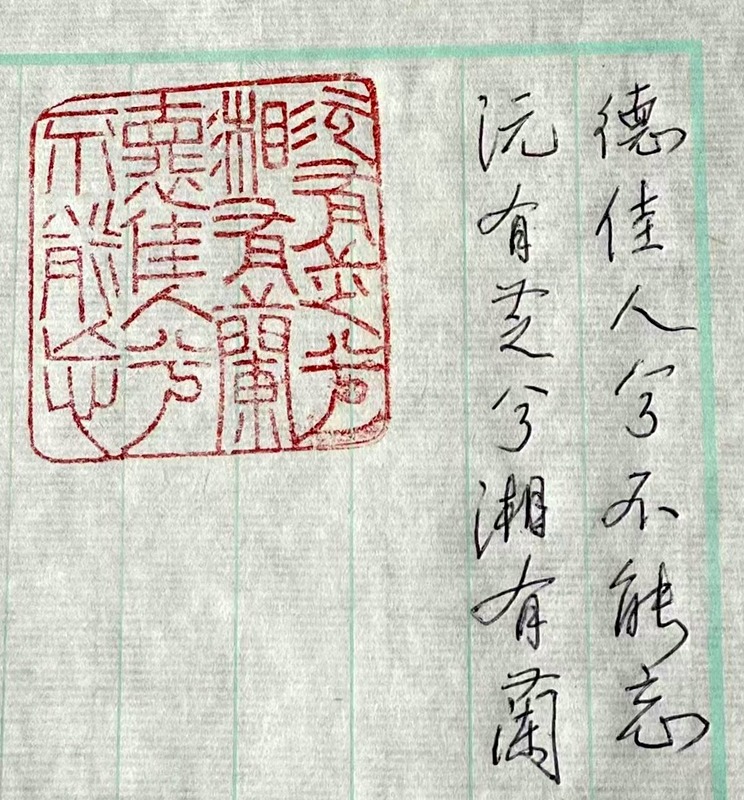 德佳人兮不能忘
沅有芝兮湘有蘭
沅有芝兮
湘有蘭
悳佳人兮
不能忘